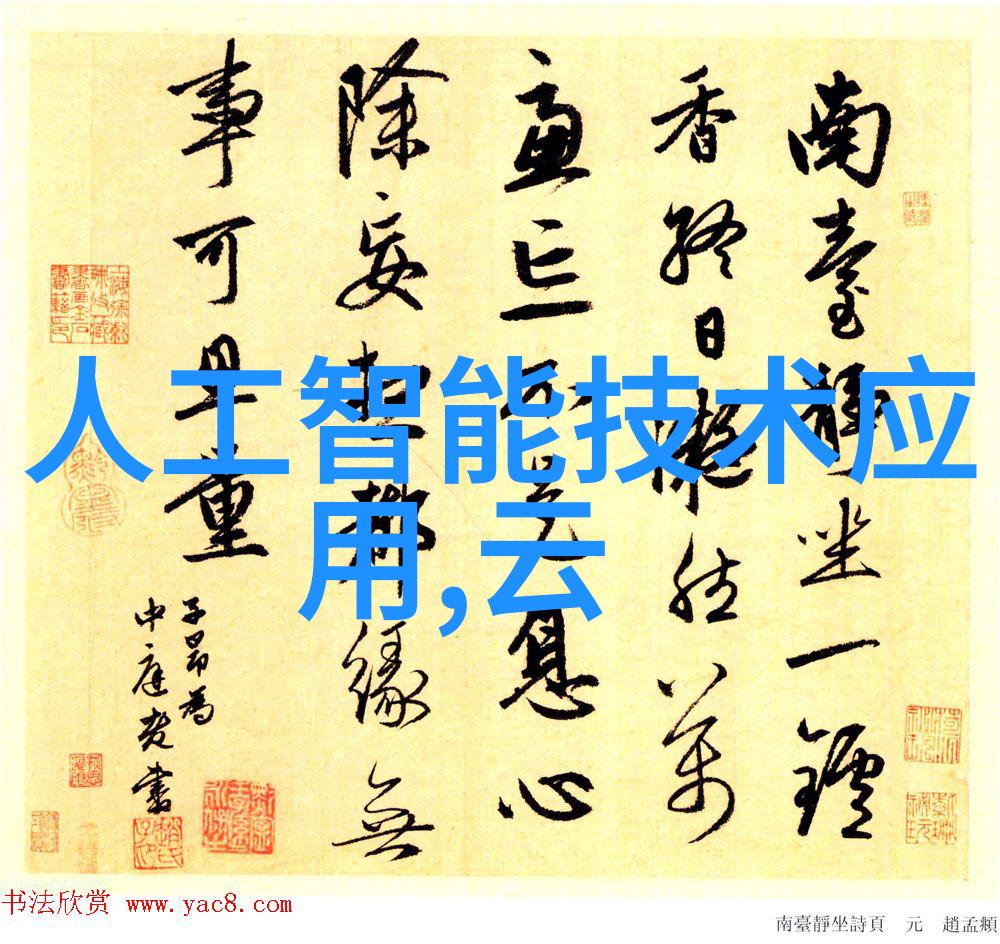 南臺靜坐一鑪
香終日凝然萬
慮亡不是息心
除妄想都緣無
事可思量
子昂爲
中庭老書
人工智能技术应
用,云
书法欣赏 www.yac8.com
南臺靜坐詩頁 元 趙孟頫